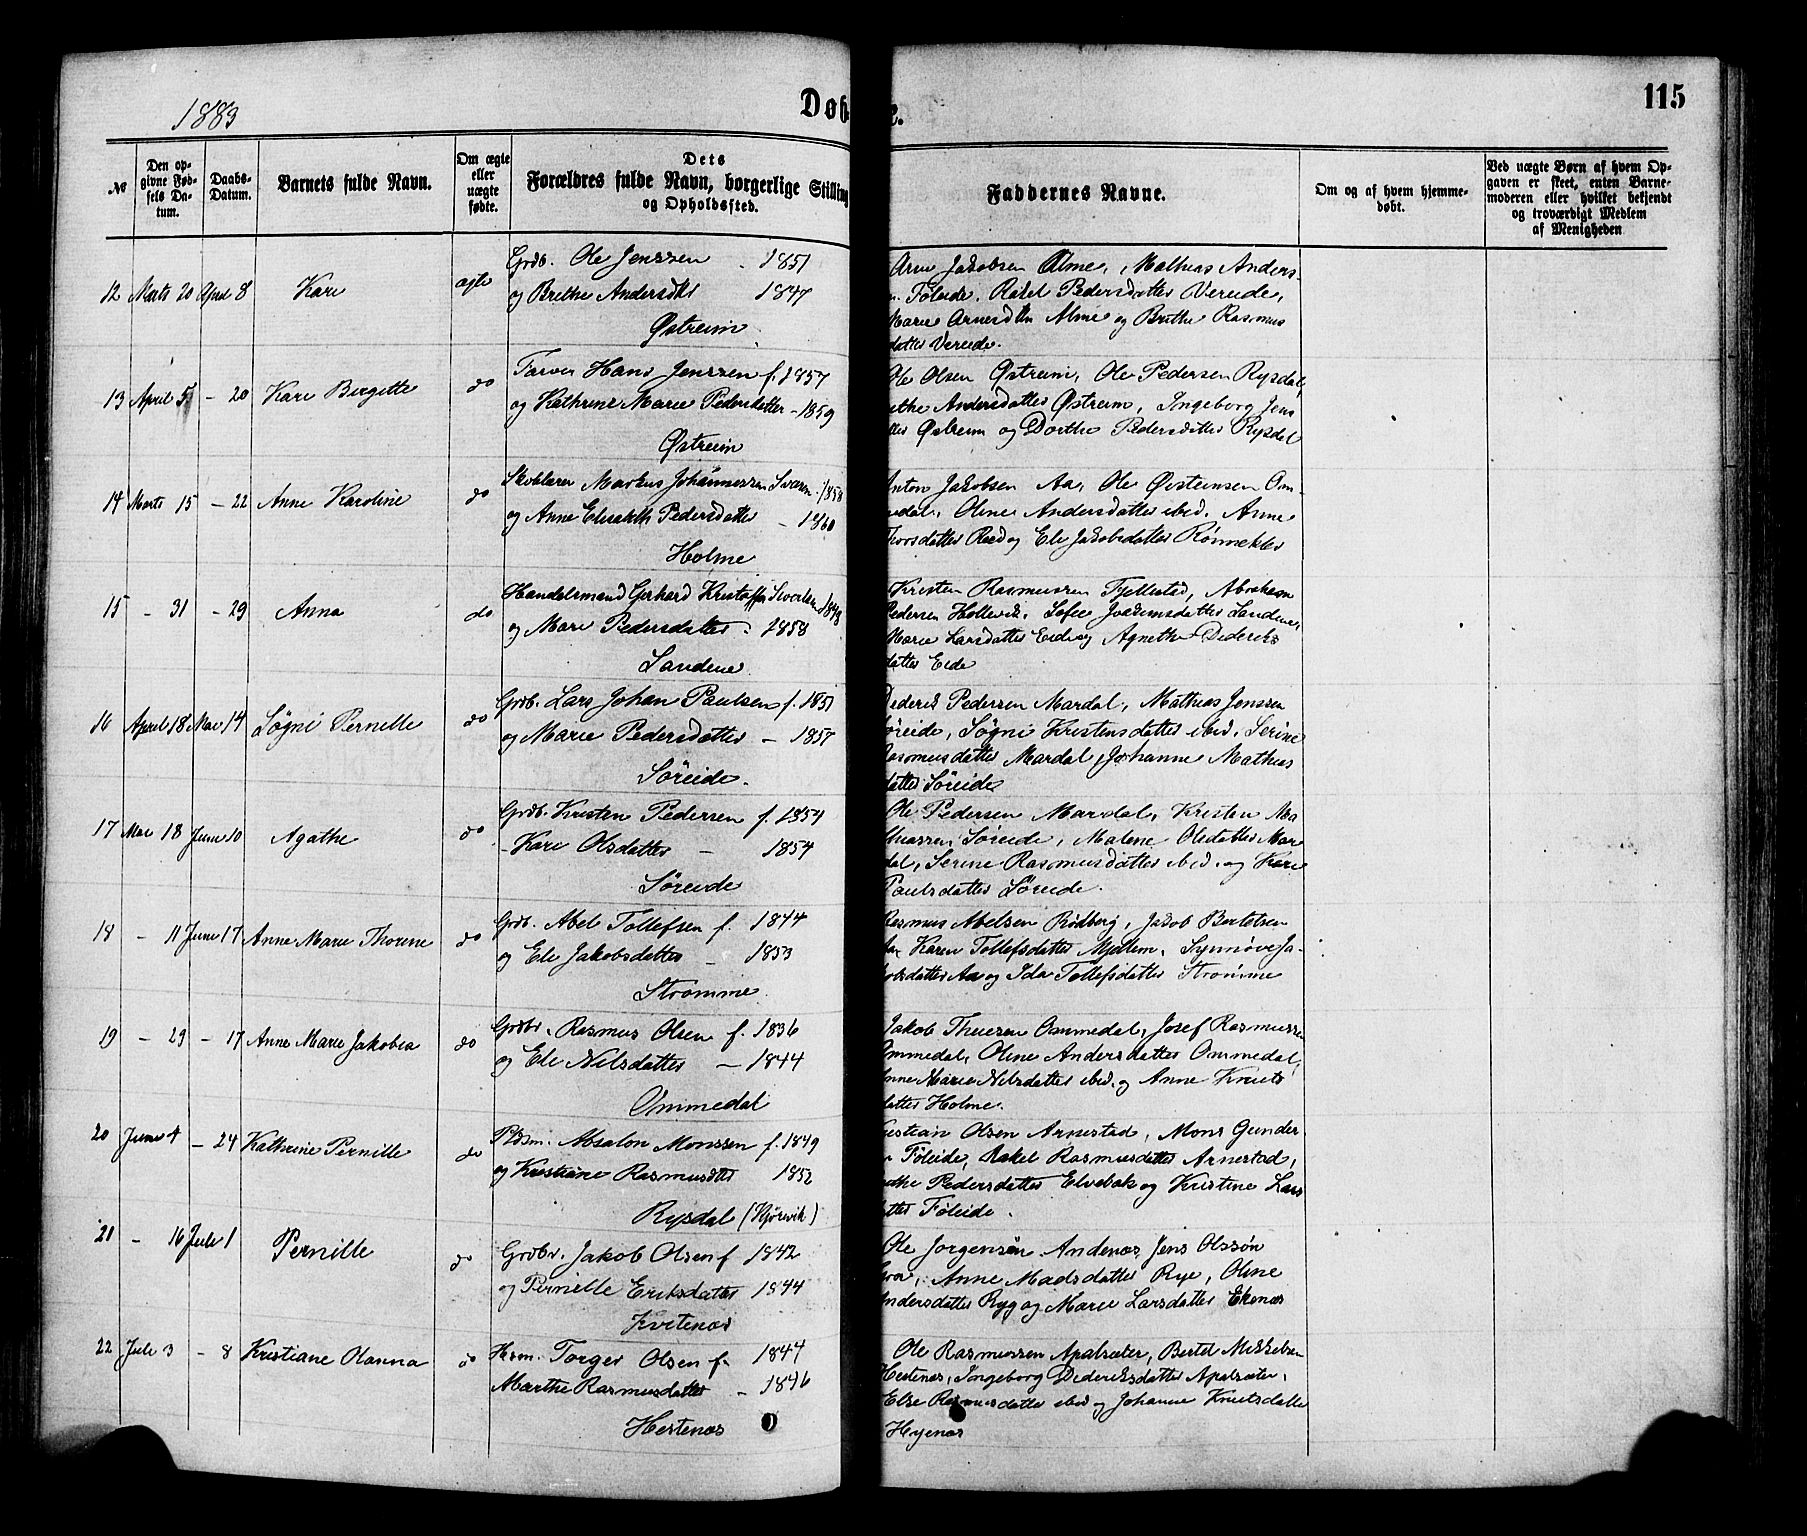 1883
Døb
e.
115
№
Den opgivne Fødsels Datum.
Daabs-Datum.
Barnets fulde Navn.
Om ægte eller uægte fødte.
Dets Forældres fulde Navn, borgerlige Stilling og Opholdssted.
Faddernes Navne.
Om og af hvem hjemmedøbt.
Ved uægte Børn af hvem Opgaven er skeet, enten Barnemoderen eller hvilket bekjendt og troværdigt Medlem af Menigheden
12 Marts 20 April 8 Kari ægte
Grdb. Ole Jenssen - 1851
og Brethe Andersdtr 1847
Østreim
Arne Jakobsen Alme, Mathias Anders
n Føleide, Rakel Pedersdatter Vereide,
Marie Arnesdttr Alme og Brithe Rasmus
datter Vereide.
13 April 5 - 20 Kari Birgitte do
Farver Hans Jenssen f. 1857
og Kathrine Marie Pedersdatter - 1859
Østreim
Ole Olsen Østreim, Ole Pedersen Rysdal,
ethe Andersdatter Østreim, Ingeborg Jens
tter Østreim og Dorthe Pedersdatter Rysdal
14 Marts 15 - 22 Anne Karoline do
Skolelærer Markus Johannessen Sværen f. 1858
og Anne Elisabeth Pedersdatter - 1860
Holme
Anton Jakobsen Aa, Ole Øisteinsen Om
edal, Oline Andersdatter ibid. Anne
Thorsdatter Reed og Eli Jakobsdatter Rønnekleiv
15 - 31 - 29 Anna do
Handelsmand Gerhard Kristoffer Sivertsen 1848
og Mari Pedersdatter 1858
Sandene
Kristen Rasmussen Fjellestad, Abraham
Pedersen Hollevik, Sofie Joakimsdatter Sandene,
Marie Larsdatter Eide og Agnethe Dideriks
datter Eide
16 April 18 Mai 14 Søgni Pernille do
Grdb. Lars Johan Paulsen f. 1851
og Marie Pedersdatter - 1857
Søreide.
Dederik Pedersen Mardal, Mathias Jenssen
Søreide, Søgni Kristensdatter ibid, Serine
Rasmusdatter Mardal, Johanne Mathias
datter Søreide
17 Mai 18 Juni 10 Agathe do
Grdb. Kristen Pedersen f. 1854
- Kari Olsdatter - 1854
Søreide
Ole Pedersen Mardal, Kristen Ma
thiassen Søreide, Malene Olsdatter Mar
dal, Serine Rasmusdatter ibid. og Kari
Paulsdatter Søreide.
18 - 11 Juni 17 Anne Marie Thorine do
Grdb. Abel Tollefsen f. 1844
og Eli Jakobsdatter - 1853
Strømme
Rasmus Abelsen Rødberg, Jakob Bertelsen
Aa Karen Tollefsdatter Mjellem, Synnøve Ja-
kobsdatter Aa og Ida Tollefsdatter Strømme
19 - 29 - 17 Anne Marie Jakobea do
Grdbr. Rasmus Olsen f. 1836
og Eli Nilsdatter - 1844
Ommedal
Jakob Thuesen Ommedal, Josef Rasmusse
Ommedal, Oline Andersdatter Ommedal,
Anne Marie Nilsdatter ibid. og Anne Knuts
datter Holme.
20 Juni 4 - 24 Kathrine Pernille do
Pldsm. Absalon Monssen f. 1849
og Kristiane Rasmusdtr 1852
Rysdal (Hjørevik)
Kristian Olsen Arnestad, Mons Gunder
n Føleide, Rakel Rasmusdatter Arnestad,
the Pedersdatter Elvebak og Kristine Lars
datter Føleide.
21 - 16 Juli 1 Pernille do
Grdbr. Jakob Olsen f 1842
og Pernille Eriksdatter 1844
Kvitenæs
Ole Jorgensen Andenæs, Jens Olssøn
Anne Madsdatter Rye, Oline
Andersdatter Ryg og Marie Larsdatter Ekenæs
22 Juli 3 - 8 Kristiane Olanna do
Husm. Torger Olsen f. 1844
Marthe Rasmusdatter - 1846
Hestenæs
Ole Rasmussen Apalsæter, Bertel Mikkelsen
Hestenæs, Ingeborg Dideriksdatter Apalsæter,
Else Rasmusdatter ibid og Johanne Knutsdatter
Hyenæs